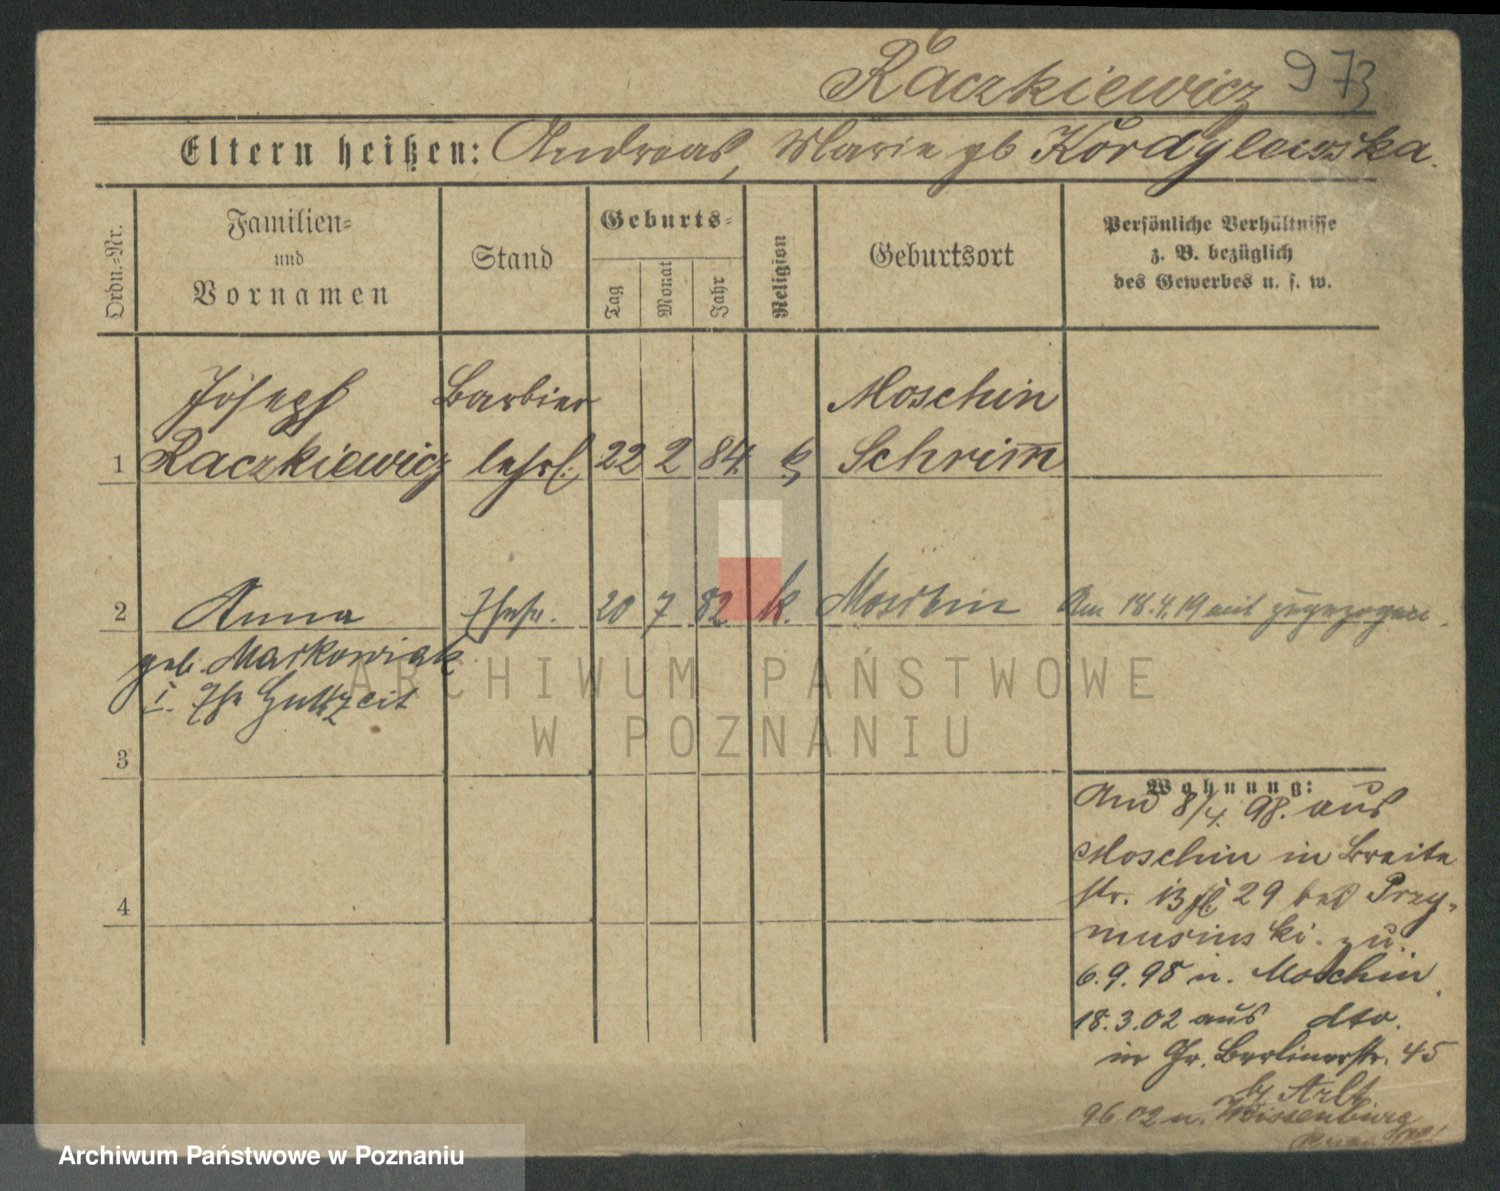 Raczkiewicz 973
Eltern heißen: Andreas, Marie gb Kordylewska.
Ordn.=Nr.
Familien=
und
Vornamen
Stand
Geburts=
Tag
Monat
Jahr
Religion
Geburtsort
Persönliche Verhältnisse
z. B. bezüglich
des Gewerbes u. s. w.
Joseph Barbier Moschin
1 Raczkiewicz lehrl. 22 2 84 Schrim̅
2 Anna Ehefr. 20 7 82 k. Moschin Am 18.4.19 mit zugezogen.
geb. Markowiak
ARCHIWUM PAŃSTWOWE
W POZNANIU
3
4
Wohnung:
Am 8/4. 98. aus
Moschin in Breite
str. 13 29 bei Przy-
musinski. zu.
6.9.98 n. Moschin
18.3.02 aus dto.
in Gr. Berlinerstr. 45
b/ Arlt.
96.02 n. Wissenburg
Archiwum Państwowe w Poznaniu